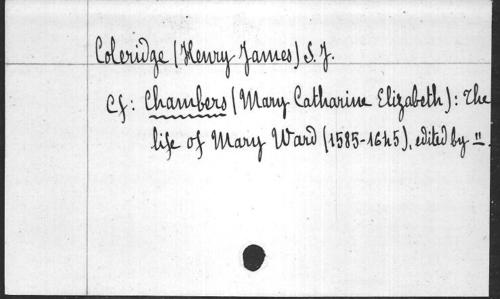 Coleridge (Henry James) S.J.
Cf: Chambers (Mary Catharine Elizabeth): The
life of Mary Ward (1585-1645), edited by "